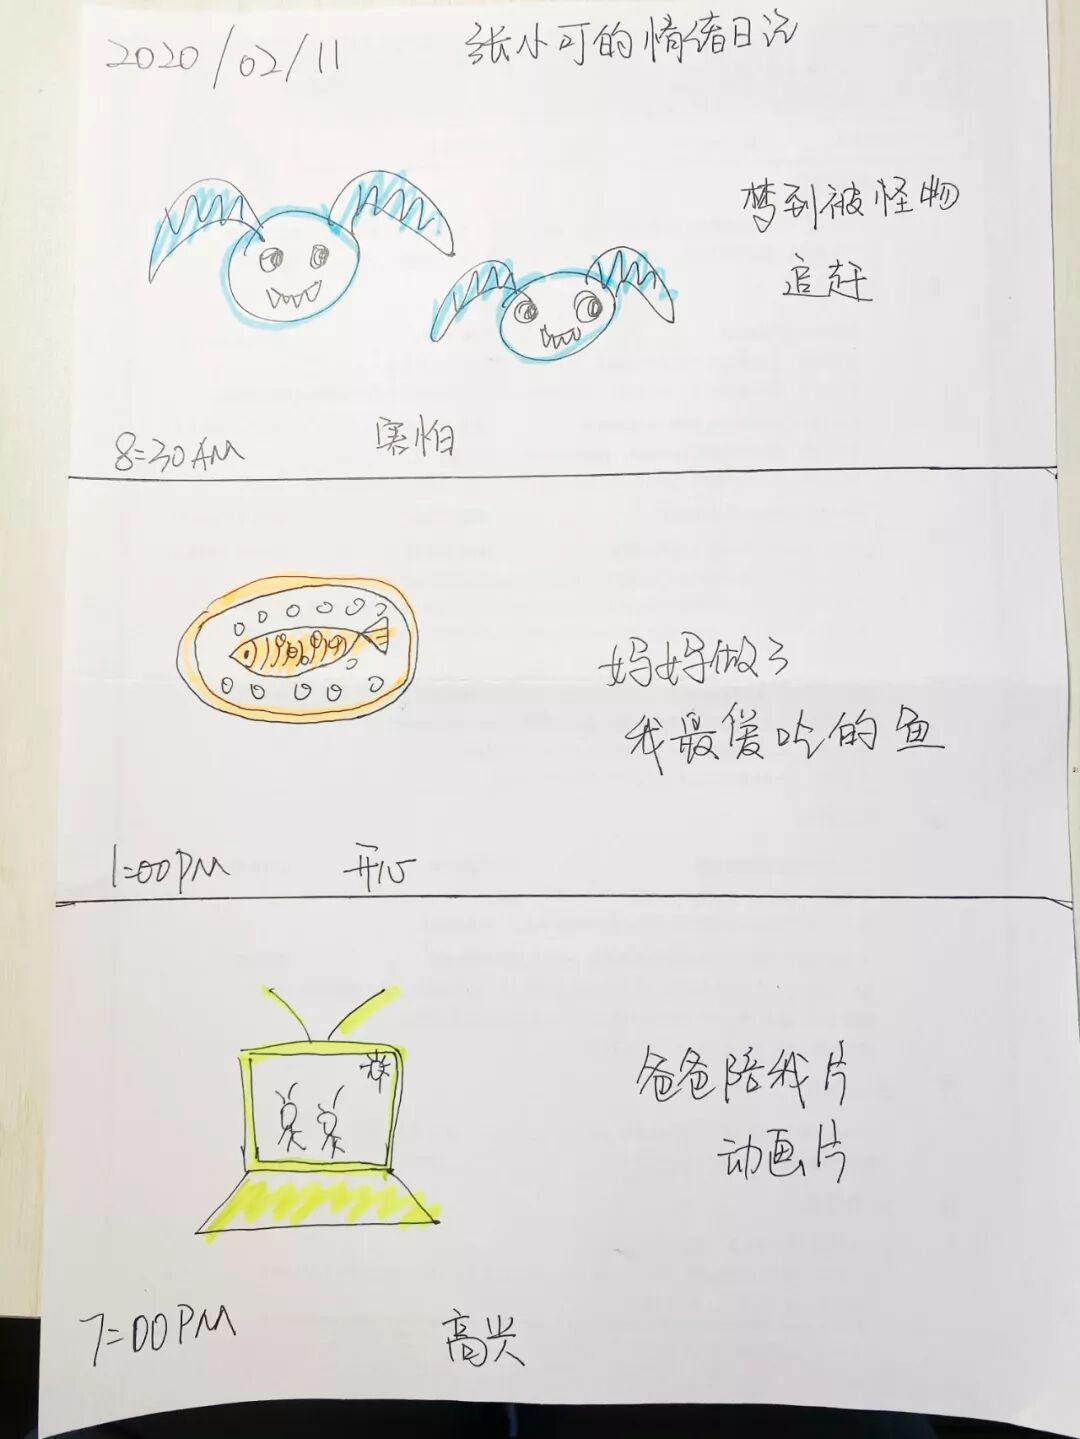 2020/02/11
张小可的情绪日记
梦到被怪物
追赶
8:30AM
害怕
妈妈做了
我最爱吃的鱼
1:00PM
开心
爸爸陪我片
动画片
7:00PM
高兴